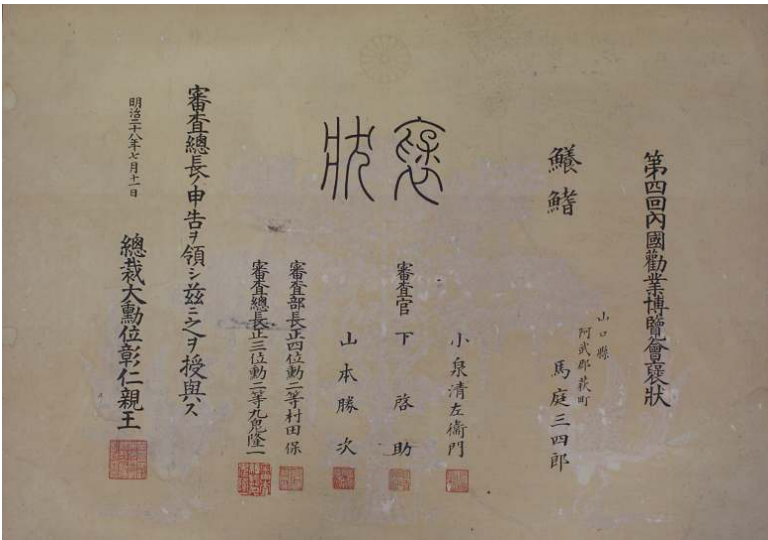 第四回內國勸業博覽會襃狀
山口縣
阿武郡萩町
馬庭三四郎
鱶鰭
襃狀
小泉清左衞門
審查官 下 啓 助
山 本 勝 次
審查部長正四位勳二等村田保
審查總長正三位勳二等九鬼隆一
審查總長ノ申告ヲ領シ茲ニ之ヲ授與ス
明治二十八年七月十一日
總裁大勳位彰仁親王